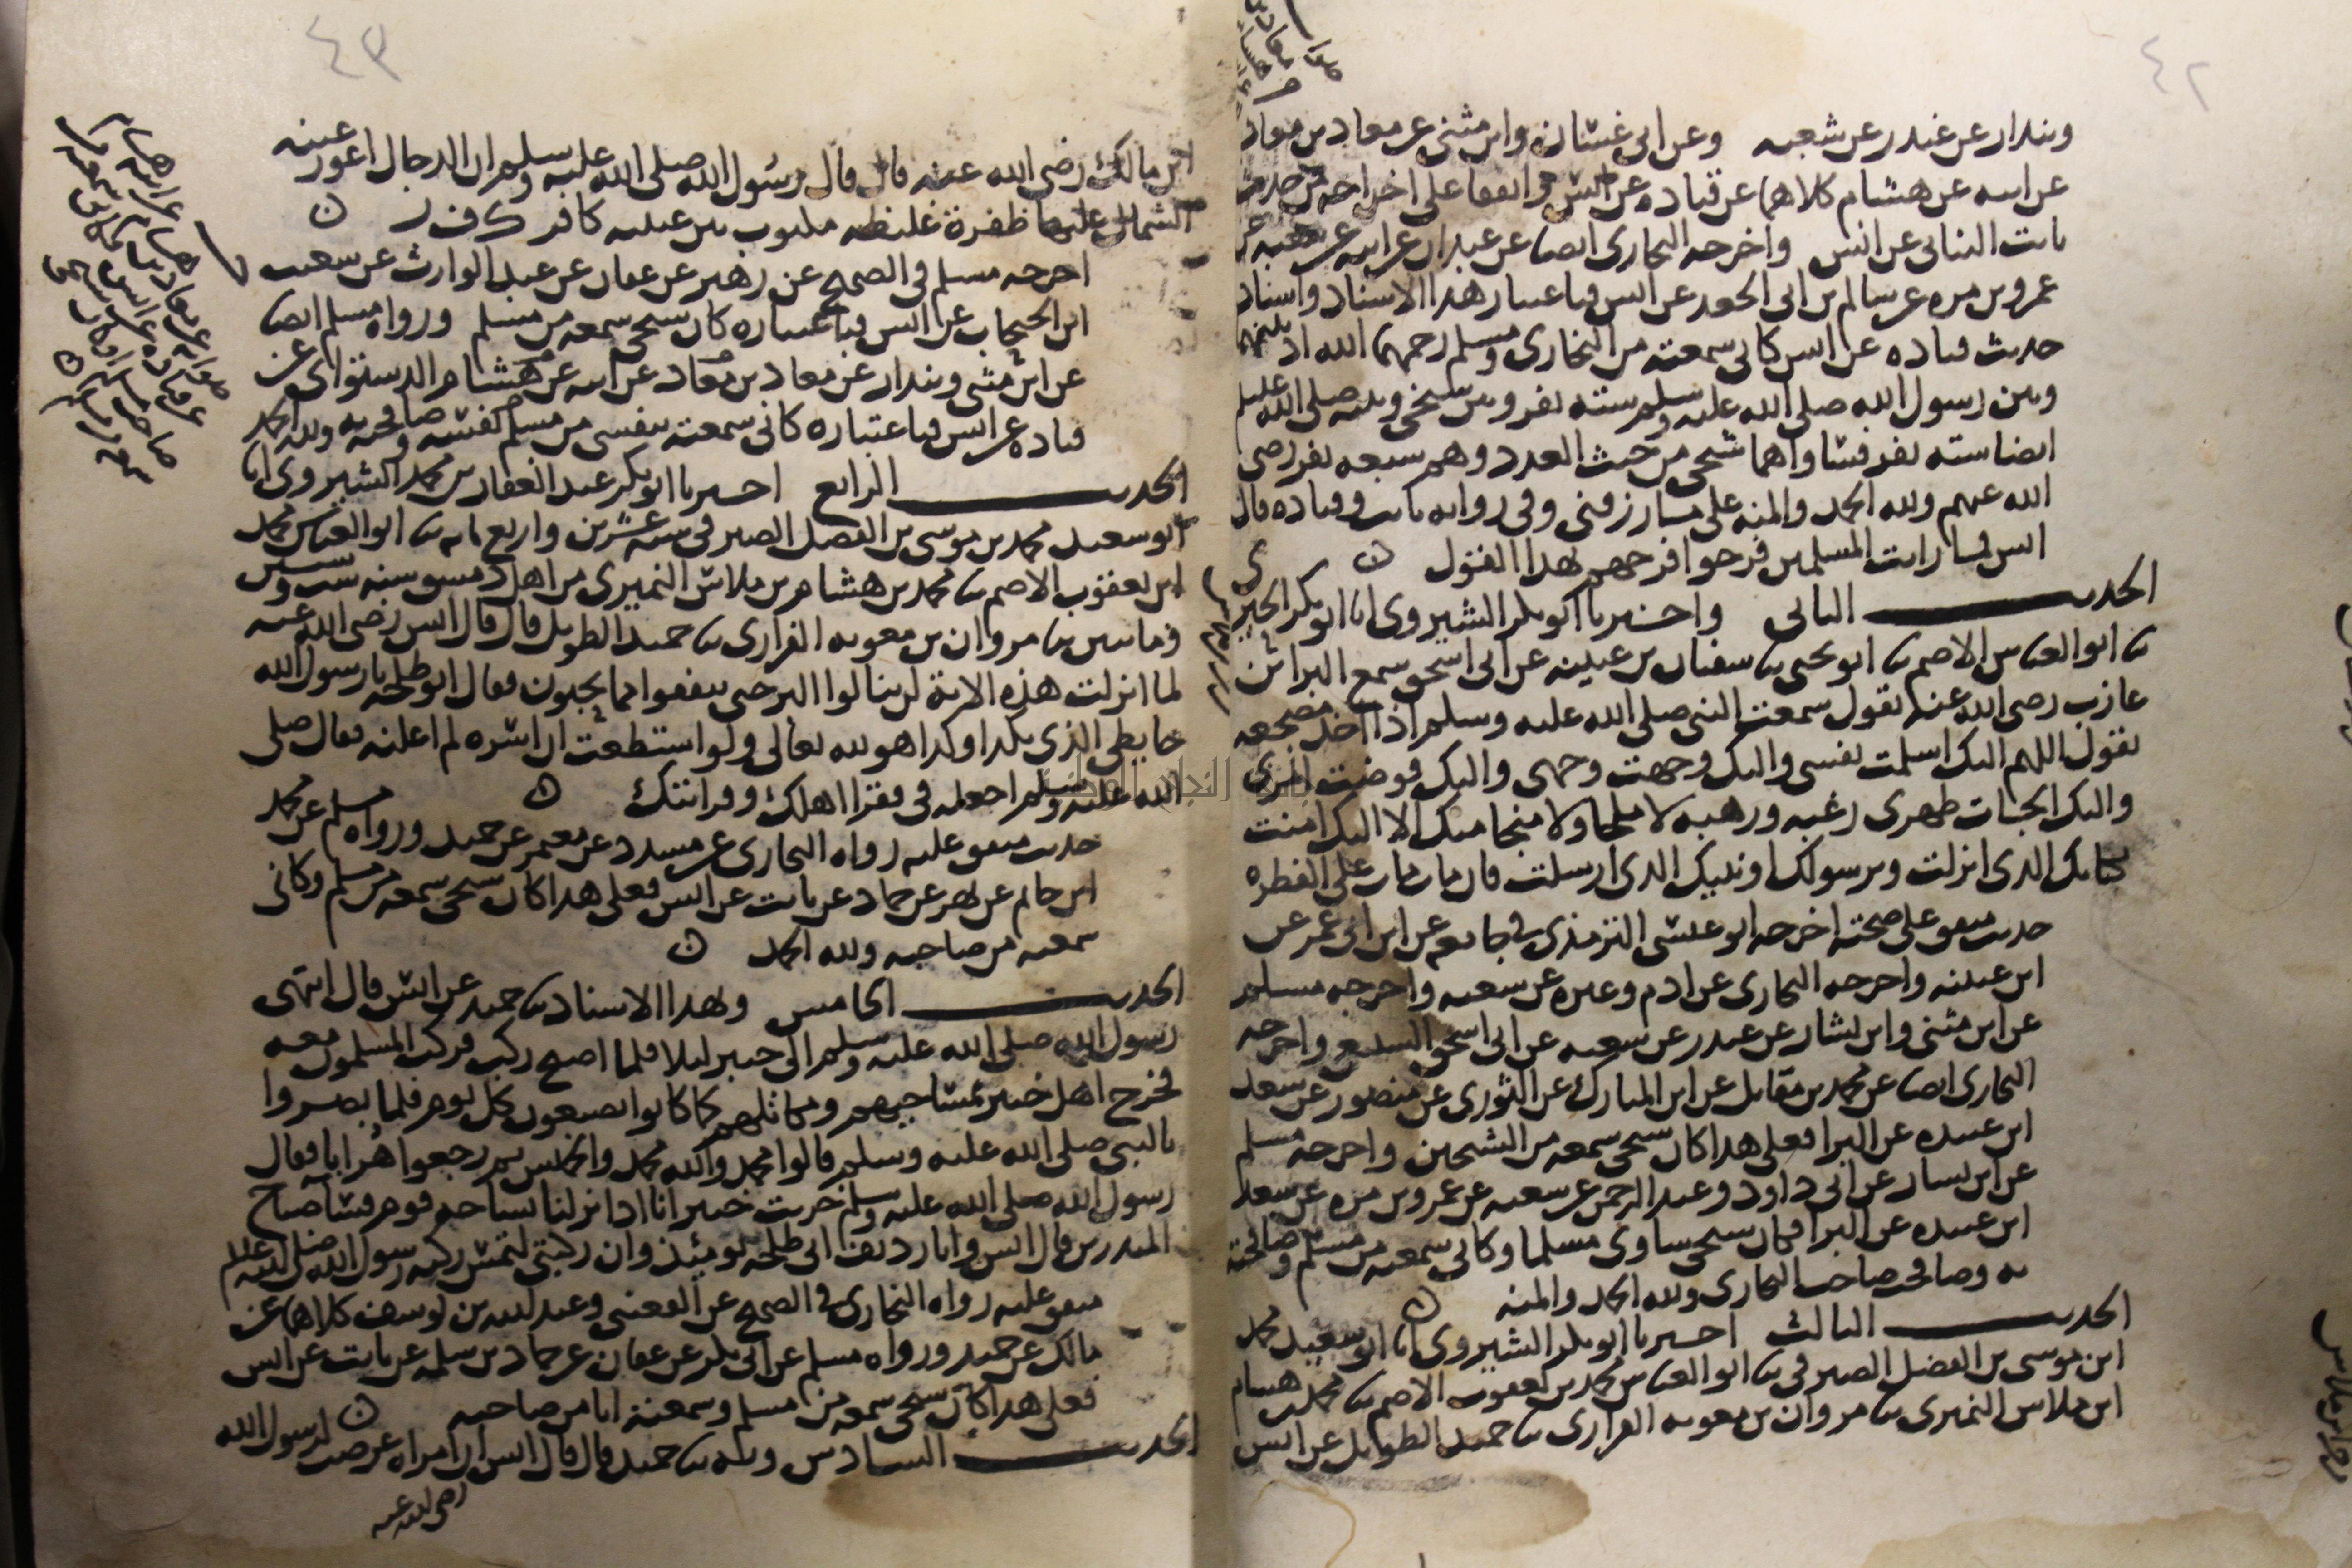 ٤٢
وبندار عن غندر عن شعبه وعن ابى غسان وابن مثنى عن معاد بن معاد
عن ابيه عن هشام كلاهما عن قتاده عن انس واتفقا على اخراجه من حديث
ثابت البنانى عن انس واخرجه البخارى ايضا عن عبدان عن ابيه عن شعبه عن
عمرو بن مره عن سالم بن ابى الجعد عن انس فباعتبار هذا الاسناد واسناد
حديث قتاده عن انس كانى سمعته من البخارى ومسلم رحمهما الله اذ بينهما
وبين رسول الله صلى الله عليه وسلم سته نفر وبين شيخى وبينه صلى الله عليه وسلم
ايضا سته نفر فساواهما شيخى من حيث العدد وهم سبعه نفر رضى
الله عنهم ولله الحمد والمنه على ما رزقنى وفى روايه ثابت وقتاده قال
انس فما رايت المسلمين فرحوا فرحهم بهذا القول ن
الحديث الثانى واخبرنا ابو بكر الشيروى انا ابو بكر الحيرى
نا ابو العباس الاصم نا ابو يحيى نا سفيان بن عيينه عن ابى اسحق سمع البرا بن
عازب رضى الله عنه يقول سمعت النبى صلى الله عليه وسلم اذا اخذ مضجعه
يقول اللهم اليك اسلمت نفسى واليك وجهت وجهى واليك فوضت امرى
واليك الجات ظهرى رغبه ورهبه لا ملجا ولا منجا منك الا اليك امنت
بكتابك الذى انزلت وبرسولك او نبيك الذى ارسلت فان مات مات على الفطره
حديث متفق على صحته اخرجه ابو عيسى الترمذى فى جامعه عن ابن ابى عمر عن
ابن عيينه واخرجه البخارى عن ادم وغيره عن شعبه واخرجه مسلم
عن ابن مثنى وابن بشار عن غندر عن شعبه عن ابى اسحق السبيعى واخرجه
البخارى ايضا عن محمد بن مقاتل عن ابن المبارك عن الثورى عن منصور عن سعد
ابن عبيده عن البرا فعلى هذا كان شيخى سمعه من الشيخين واخرجه مسلم
عن ابن بشار عن ابى داود وعبد الرحمن عن شعبه عن عمرو بن مره عن سعد
ابن عبيده عن البرا فكان شيخى ساوى مسلما وكانى سمعته من مسلم وصافحته
به وصافحت صاحب البخارى ولله الحمد والمنه ن
الحديث الثالث اخبرنا ابو بكر الشيروى انا ابو سعيد محمد
ابن موسى بن الفضل الصيرفى نا ابو العباس محمد بن يعقوب الاصم نا محمد بن هشام
ابن ملاس النميرى نا مروان بن معويه الفزارى نا حميد الطويل عن انس
٤٣
ابن مالك رضى الله عنه قال قال رسول الله صلى الله عليه وسلم ان الدجال اعور عينه
الشمال عليها ظفرة غليظه مكتوب بين عينيه كافر ك ف ر ن
اخرجه مسلم فى الصحيح عن زهير عن عفان عن عبد الوارث عن شعيب
ابن الحبحاب عن انس فباعتباره كان شيخى سمعه من مسلم ورواه مسلم ايضا
عن ابن مثنى وبندار عن معاد بن معاد عن ابيه عن هشام الدستوائى عن
قتاده عن انس فباعتباره كانى سمعته بنفسى من مسلم نفسه وصافحته به ولله الحمد
الحديث الرابع اخبرنا ابو بكر عبد الغفار بن محمد الشيروى انا
ابو سعيد محمد بن موسى بن الفضل الصيرفى سنه عشرين واربع مايه نا ابو العباس محمد
ابن يعقوب الاصم نا محمد بن هشام بن ملاس النميرى من اهل دمشق سنه ست وستين
ومايتين نا مروان بن معويه الفزارى نا حميد الطويل قال قال انس رضى الله عنه
لما انزلت هذه الاية لن تنالوا البر حتى تنفقوا مما تحبون فقال ابو طلحه يا رسول الله
حايطى الذى بكذا وكذا هو لله تعالى ولو استطعت ان اسره لم اعلنه فقال صلى
الله عليه وسلم اجعله فى فقرا اهلك وقرابتك ن
حديث متفق عليه رواه البخارى عن مسدد عن معمر عن حميد ورواه مسلم عن محمد
ابن حاتم عن بهز عن حماد عن ثابت عن انس فعلى هذا كان شيخى سمعه من مسلم وكانى
سمعته من صاحبه ولله الحمد ن
الحديث الخامس وبهذا الاسناد نا حميد عن انس قال انتهى
رسول الله صلى الله عليه وسلم الى خيبر ليلا فلما اصبح ركب وركب المسلمون معه
فخرج اهل خيبر بمساحيهم ومكاتلهم كما كانوا يصنعون كل يوم فلما بصروا
بالنبى صلى الله عليه وسلم قالوا محمد والله محمد والخميس ثم رجعوا هرابا فقال
رسول الله صلى الله عليه وسلم خربت خيبر انا اذا نزلنا بساحه قوم فسا صباح
المنذرين قال انس وانا رديف ابى طلحه يومئذ وان ركبتى لتمس ركبه رسول الله صلى الله عليه وسلم
متفق عليه رواه البخارى فى الصحيح عن القعنبى وعبد الله بن يوسف كلاهما عن
مالك عن حميد ورواه مسلم عن ابى بكر عن عفان عن حماد بن سلمه عن ثابت عن انس
فعلى هذا كان شيخى سمعه من مسلم وسمعته انا من صاحبه ن
الحديث السادس وبه نا حميد قال قال انس ان امراه عرضت لرسول الله
رضى الله عنه